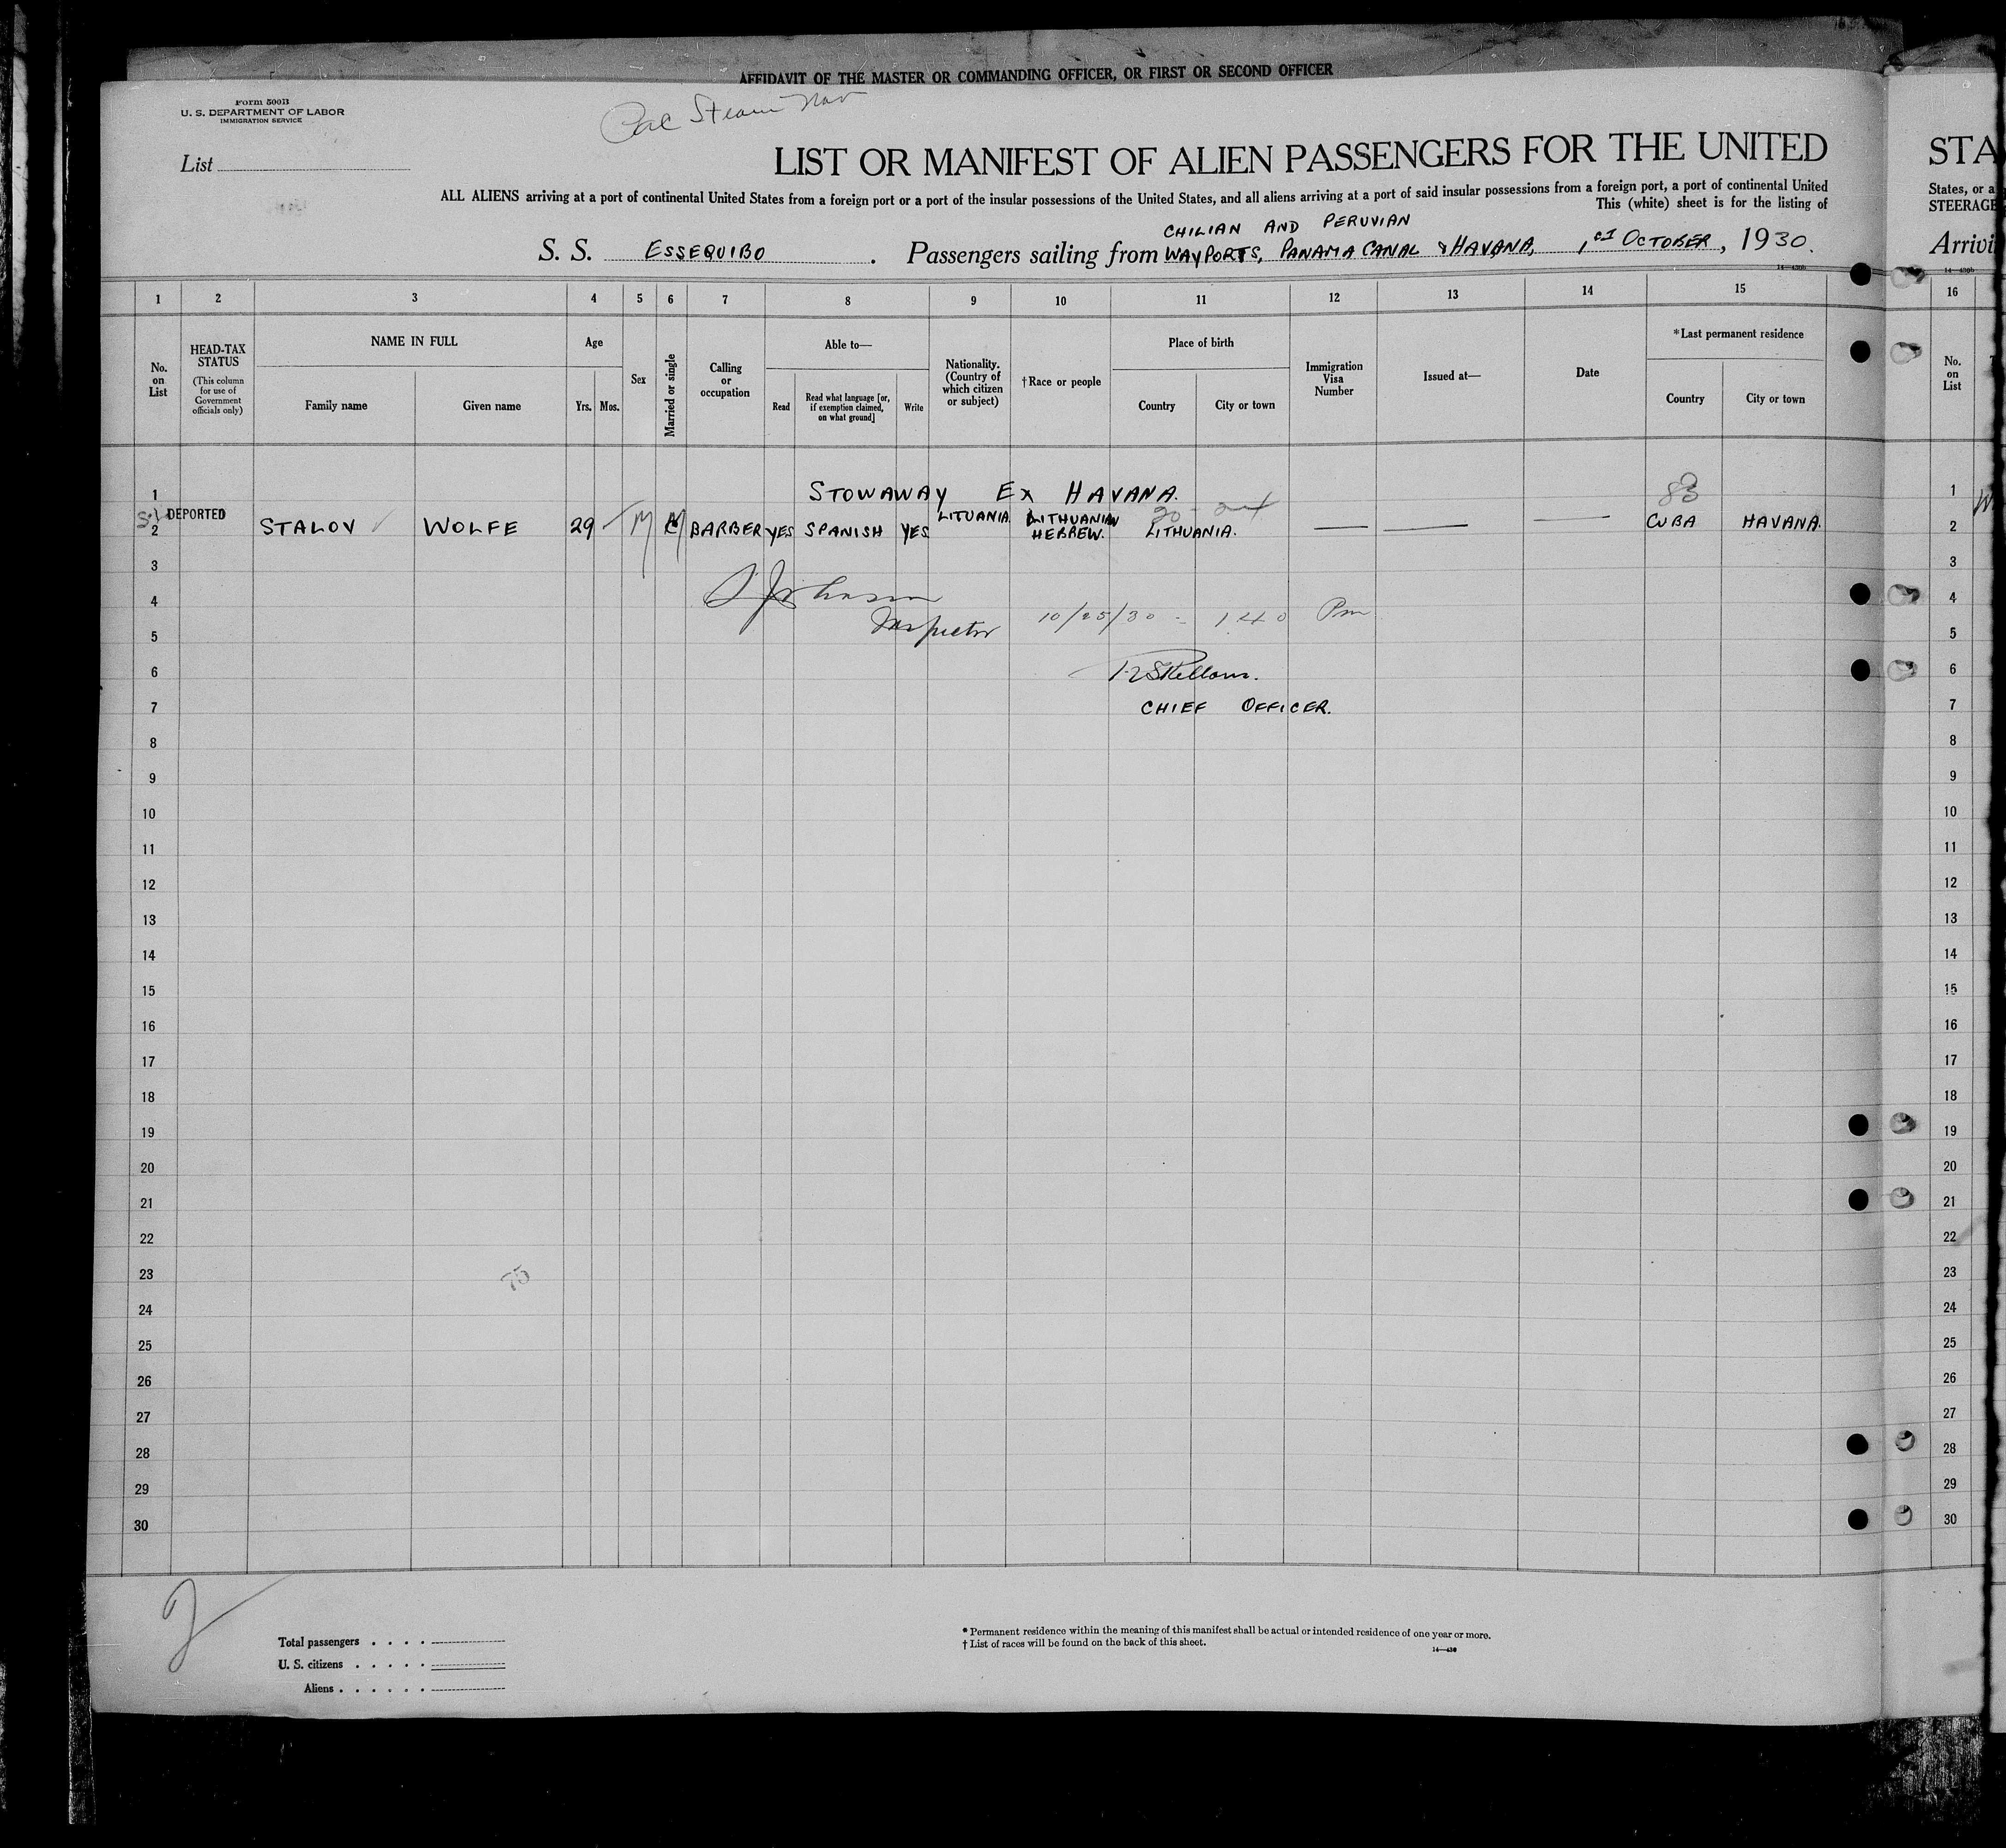 AFFIDAVIT OF THE MASTER OR COMMANDING OFFICER, OR FIRST OR SECOND OFFICER
Form 500B
U. S. DEPARTMENT OF LABOR
IMMIGRATION SERVICE
Pac Steam Nav
List
LIST OR MANIFEST OF ALIEN PASSENGERS FOR THE UNITED
STA
ALL ALIENS arriving at a port of continental United States from a foreign port or a port of the insular possessions of the United States, and all aliens arriving at a port of said insular possessions from a foreign port, a port of continental United
States, or a
This (white) sheet is for the listing of
STEERAGE
CHILIAN AND PERUVIAN
S. S. ESSEQUIBO . Passengers sailing from WAYPORTS, PANAMA CANAL & HAVANA, 1st OCTOBER, 1930.
Arrivi
14—430b
14—430b
1 2 3 4 5 6 7 8 9 10 11 12 13 14 15 16
No. on List
HEAD-TAX STATUS
(This column for use of Government officials only)
NAME IN FULL
Family name
Given name
Age
Yrs.
Mos.
Sex
Married or single
Calling or occupation
Able to—
Read
Read what language [or, if exemption claimed, on what ground]
Write
Nationality. (Country of which citizen or subject)
†Race or people
Place of birth
Country
City or town
Immigration Visa Number
Issued at—
Date
*Last permanent residence
Country
City or town
No. on List
1 STOWAWAY EX HAVANA. 1
DEPORTED
2 STALOV WOLFE 29 M M BARBER YES SPANISH YES LITUANIA LITHUANIAN HEBREW. LITHUANIA. CUBA HAVANA. 2
3 3
4 4
Inspector 10/25/30 - 140 Pm
5 5
6 6
7 CHIEF OFFICER. 7
8 8
9 9
10 10
11 11
12 12
13 13
14 14
15 15
16 16
17 17
18 18
19 19
20 20
21 21
22 22
23 75 23
24 24
25 25
26 26
27 27
28 28
29 29
30 30
2
Total passengers
U. S. citizens
Aliens
* Permanent residence within the meaning of this manifest shall be actual or intended residence of one year or more.
† List of races will be found on the back of this sheet.
14—430